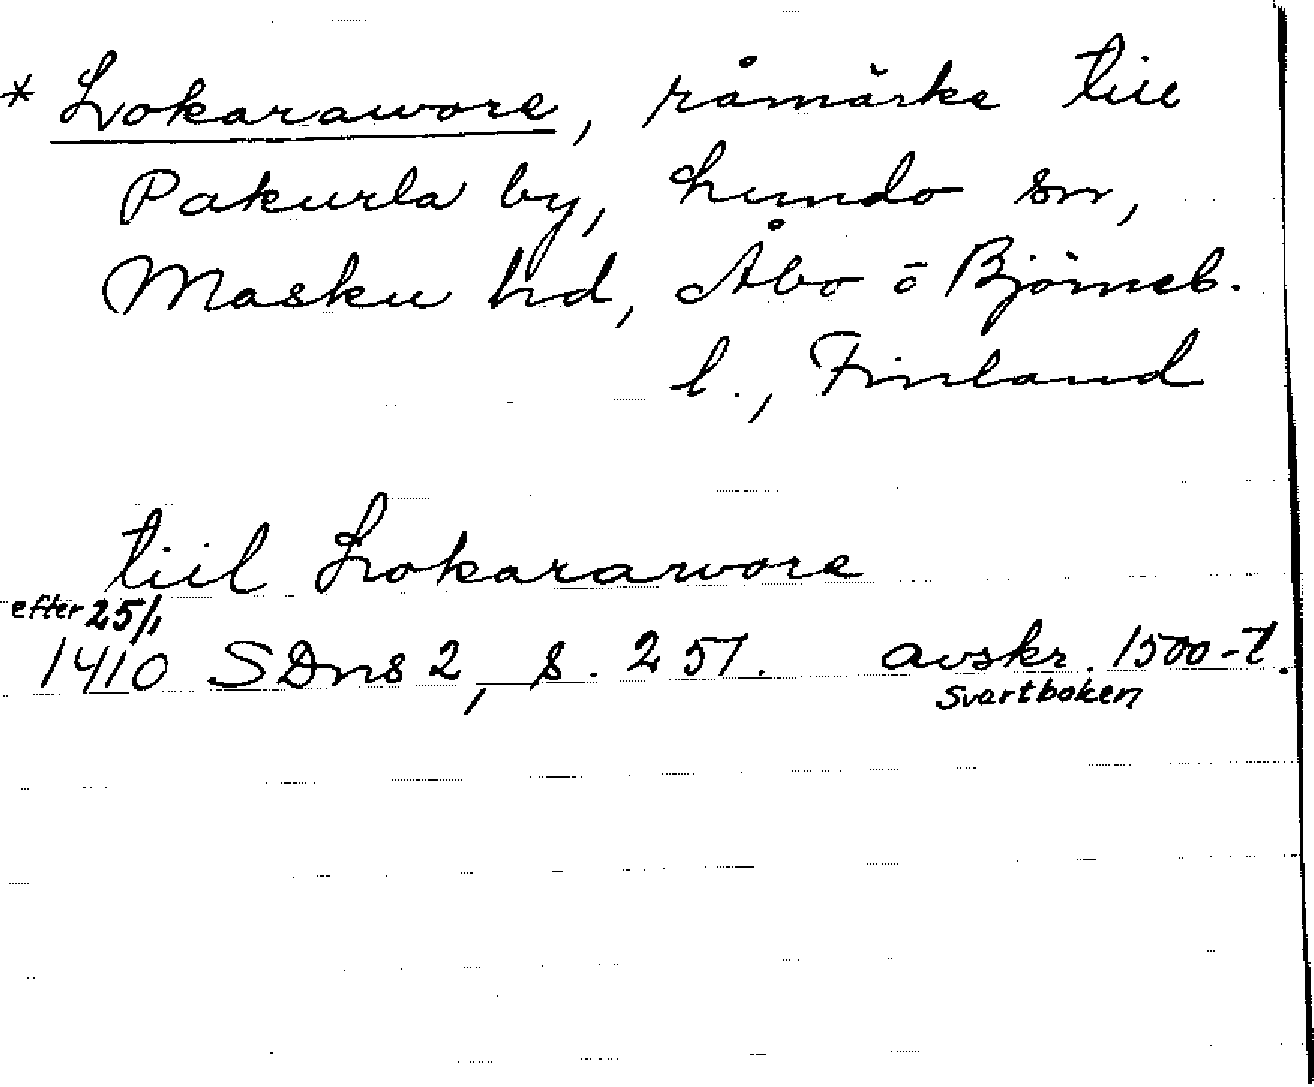 * Lokarawore, råmärke till
Pakurla by, Lundo sn,
Masku hd, Åbo o Björneb.
l., Finland
tiil Lokarawore
efter 25/1
1410 SDns 2, s. 251. avskr. 1500-t.
Svartboken